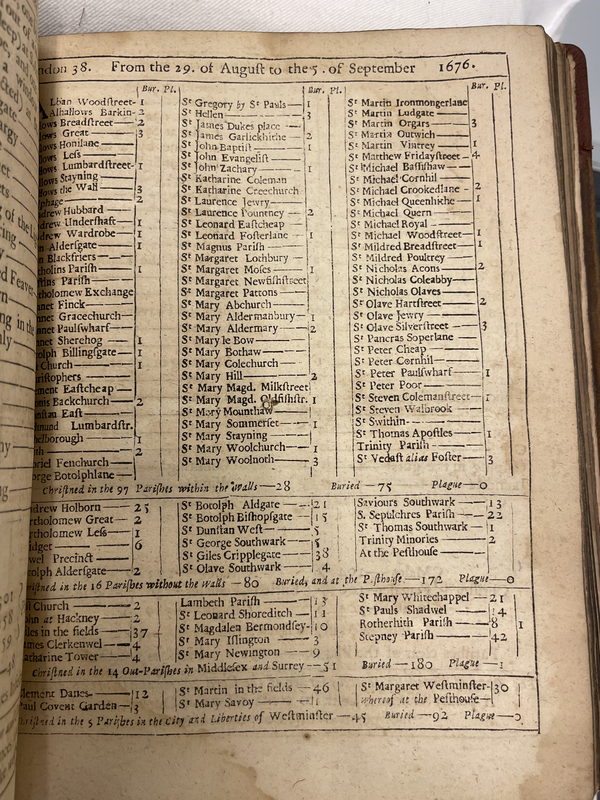 ndon 38. From the 29. of Auguſt to the 5. of September 1676.
Bur. Pl.
Lban Woodſtreet- 1
Alhallows Barkin- 2
lows Breadſtreet— 2
lows Great— 3
lows Honilane—
lows Leſs—
lows Lumbardſtreet- 1
lows Stayning—
lows the Wall— 3
phage— 2
drew Hubbard—
drew Underſhaft— 1
drew Wardrobe— 1
n Alderſgate— 1
n Blackfriers—
tholins Pariſh— 1
tins Pariſh—
tholomew Exchange
net Finck—
net Gracechurch—
net Paulſwharf—
net Sherehog— 1
tolph Billingſgate— 1
Church— 1
riſtophers—
ment Eaſtcheap—
onis Backchurch— 2
nſtan Eaſt—
mund Lumbardſtr.
helborough— 1
ith— 2
riel Fenchurch—
orge Botolphlane—
Bur. Pl.
Sᵗ Gregory by Sᵗ Pauls— 1
Sᵗ Hellen— 3
Sᵗ James Dukes place—
Sᵗ James Garlickhithe— 2
Sᵗ John Baptiſt— 1
Sᵗ John Evangeliſt—
Sᵗ John Zachary— 1
Sᵗ Katharine Coleman
Sᵗ Katharine Creechurch
Sᵗ Laurence Jewry—
Sᵗ Laurence Pountney— 2
Sᵗ Leonard Eaſtcheap
Sᵗ Leonard Foſterlane— 1
Sᵗ Magnus Pariſh—
Sᵗ Margaret Lothbury—
Sᵗ Margaret Moſes— 1
Sᵗ Margaret Newfiſhſtreet
Sᵗ Margaret Pattons—
Sᵗ Mary Abchurch—
Sᵗ Mary Aldermanbury— 1
Sᵗ Mary Aldermary— 2
Sᵗ Mary le Bow—
Sᵗ Mary Bothaw—
Sᵗ Mary Colechurch—
Sᵗ Mary Hill— 2
Sᵗ Mary Magd. Milkſtreet
Sᵗ Mary Magd. Oldfiſhſtr. 1
Sᵗ Mary Mounthaw—
Sᵗ Mary Somerſet— 1
Sᵗ Mary Stayning—
Sᵗ Mary Woolchurch— 1
Sᵗ Mary Woolnoth— 3
Bur. Pl.
Sᵗ Martin Ironmongerlane
Sᵗ Martin Ludgate—
Sᵗ Martin Orgars— 3
Sᵗ Martin Outwich—
Sᵗ Martin Vintrey— 1
Sᵗ Matthew Fridayſtreet— 4
Sᵗ Michael Baſſiſhaw—
Sᵗ Michael Cornhil—
Sᵗ Michael Crookedlane - 2
Sᵗ Michael Queenhithe— 1
Sᵗ Michael Quern—
Sᵗ Michael Royal—
Sᵗ Michael Woodſtreet— 1
Sᵗ Mildred Breadſtreet— 1
Sᵗ Mildred Poultrey—
Sᵗ Nicholas Acons— 2
Sᵗ Nicholas Coleabby—
Sᵗ Nicholas Olaves—
Sᵗ Olave Hartſtreet— 2
Sᵗ Olave Jewry—
Sᵗ Olave Silverſtreet— 3
Sᵗ Pancras Soperlane—
Sᵗ Peter Cheap—
Sᵗ Peter Cornhil—
Sᵗ Peter Paulſwharf— 1
Sᵗ Peter Poor—
Sᵗ Steven Colemanſtreet— 1
Sᵗ Steven Walbrook—
Sᵗ Swithin—
Sᵗ Thomas Apoſtles— 1
Trinity Pariſh—
Sᵗ Vedaſt alias Foſter— 3
Chriſtned in the 97 Pariſhes within the Walls—28 Buried—75 Plague—0
drew Holborn— 25
rtholomew Great— 2
rtholomew Leſs— 1
idget— 6
wel Precinct—
tolph Alderſgate— 2
Sᵗ Botolph Aldgate— 21
Sᵗ Botolph Biſhopſgate— 15
Sᵗ Dunſtan Weſt— 5
Sᵗ George Southwark— 5
Sᵗ Giles Cripplegate— 38
Sᵗ Olave Southwark— 4
Saviours Southwark— 13
S. Sepulchres Pariſh— 22
Sᵗ Thomas Southwark— 1
Trinity Minories— 2
At the Peſthouſe—
iſtned in the 16 Pariſhes without the Walls—80 Buried, and at the Peſthouſe—172 Plague—0
Church— 2
hn at Hackney— 2
les in the fields— 37
mes Clerkenwel— 4
atharine Tower— 4
Lambeth Pariſh— 13
Sᵗ Leonard Shoreditch— 11
Sᵗ Magdalen Bermondſey- 10
Sᵗ Mary Iſlington— 3
Sᵗ Mary Newington— 9
Sᵗ Mary Whitechappel— 21
Sᵗ Pauls Shadwel— 14
Rotherhith Pariſh— 8 1
Stepney Pariſh— 42
Chriſtned in the 14 Out-Pariſhes in Middleſex and Surrey—51 Buried—180 Plague—1
lement Danes— 12
Paul Covent Garden— 3
Sᵗ Martin in the fields— 46
Sᵗ Mary Savoy— 1
Sᵗ Margaret Weſtminſter- 30
whereof at the Peſthouſe—
hriſtned in the 5 Pariſhes in the City and Liberties of Weſtminſter—45 Buried—92 Plague—0